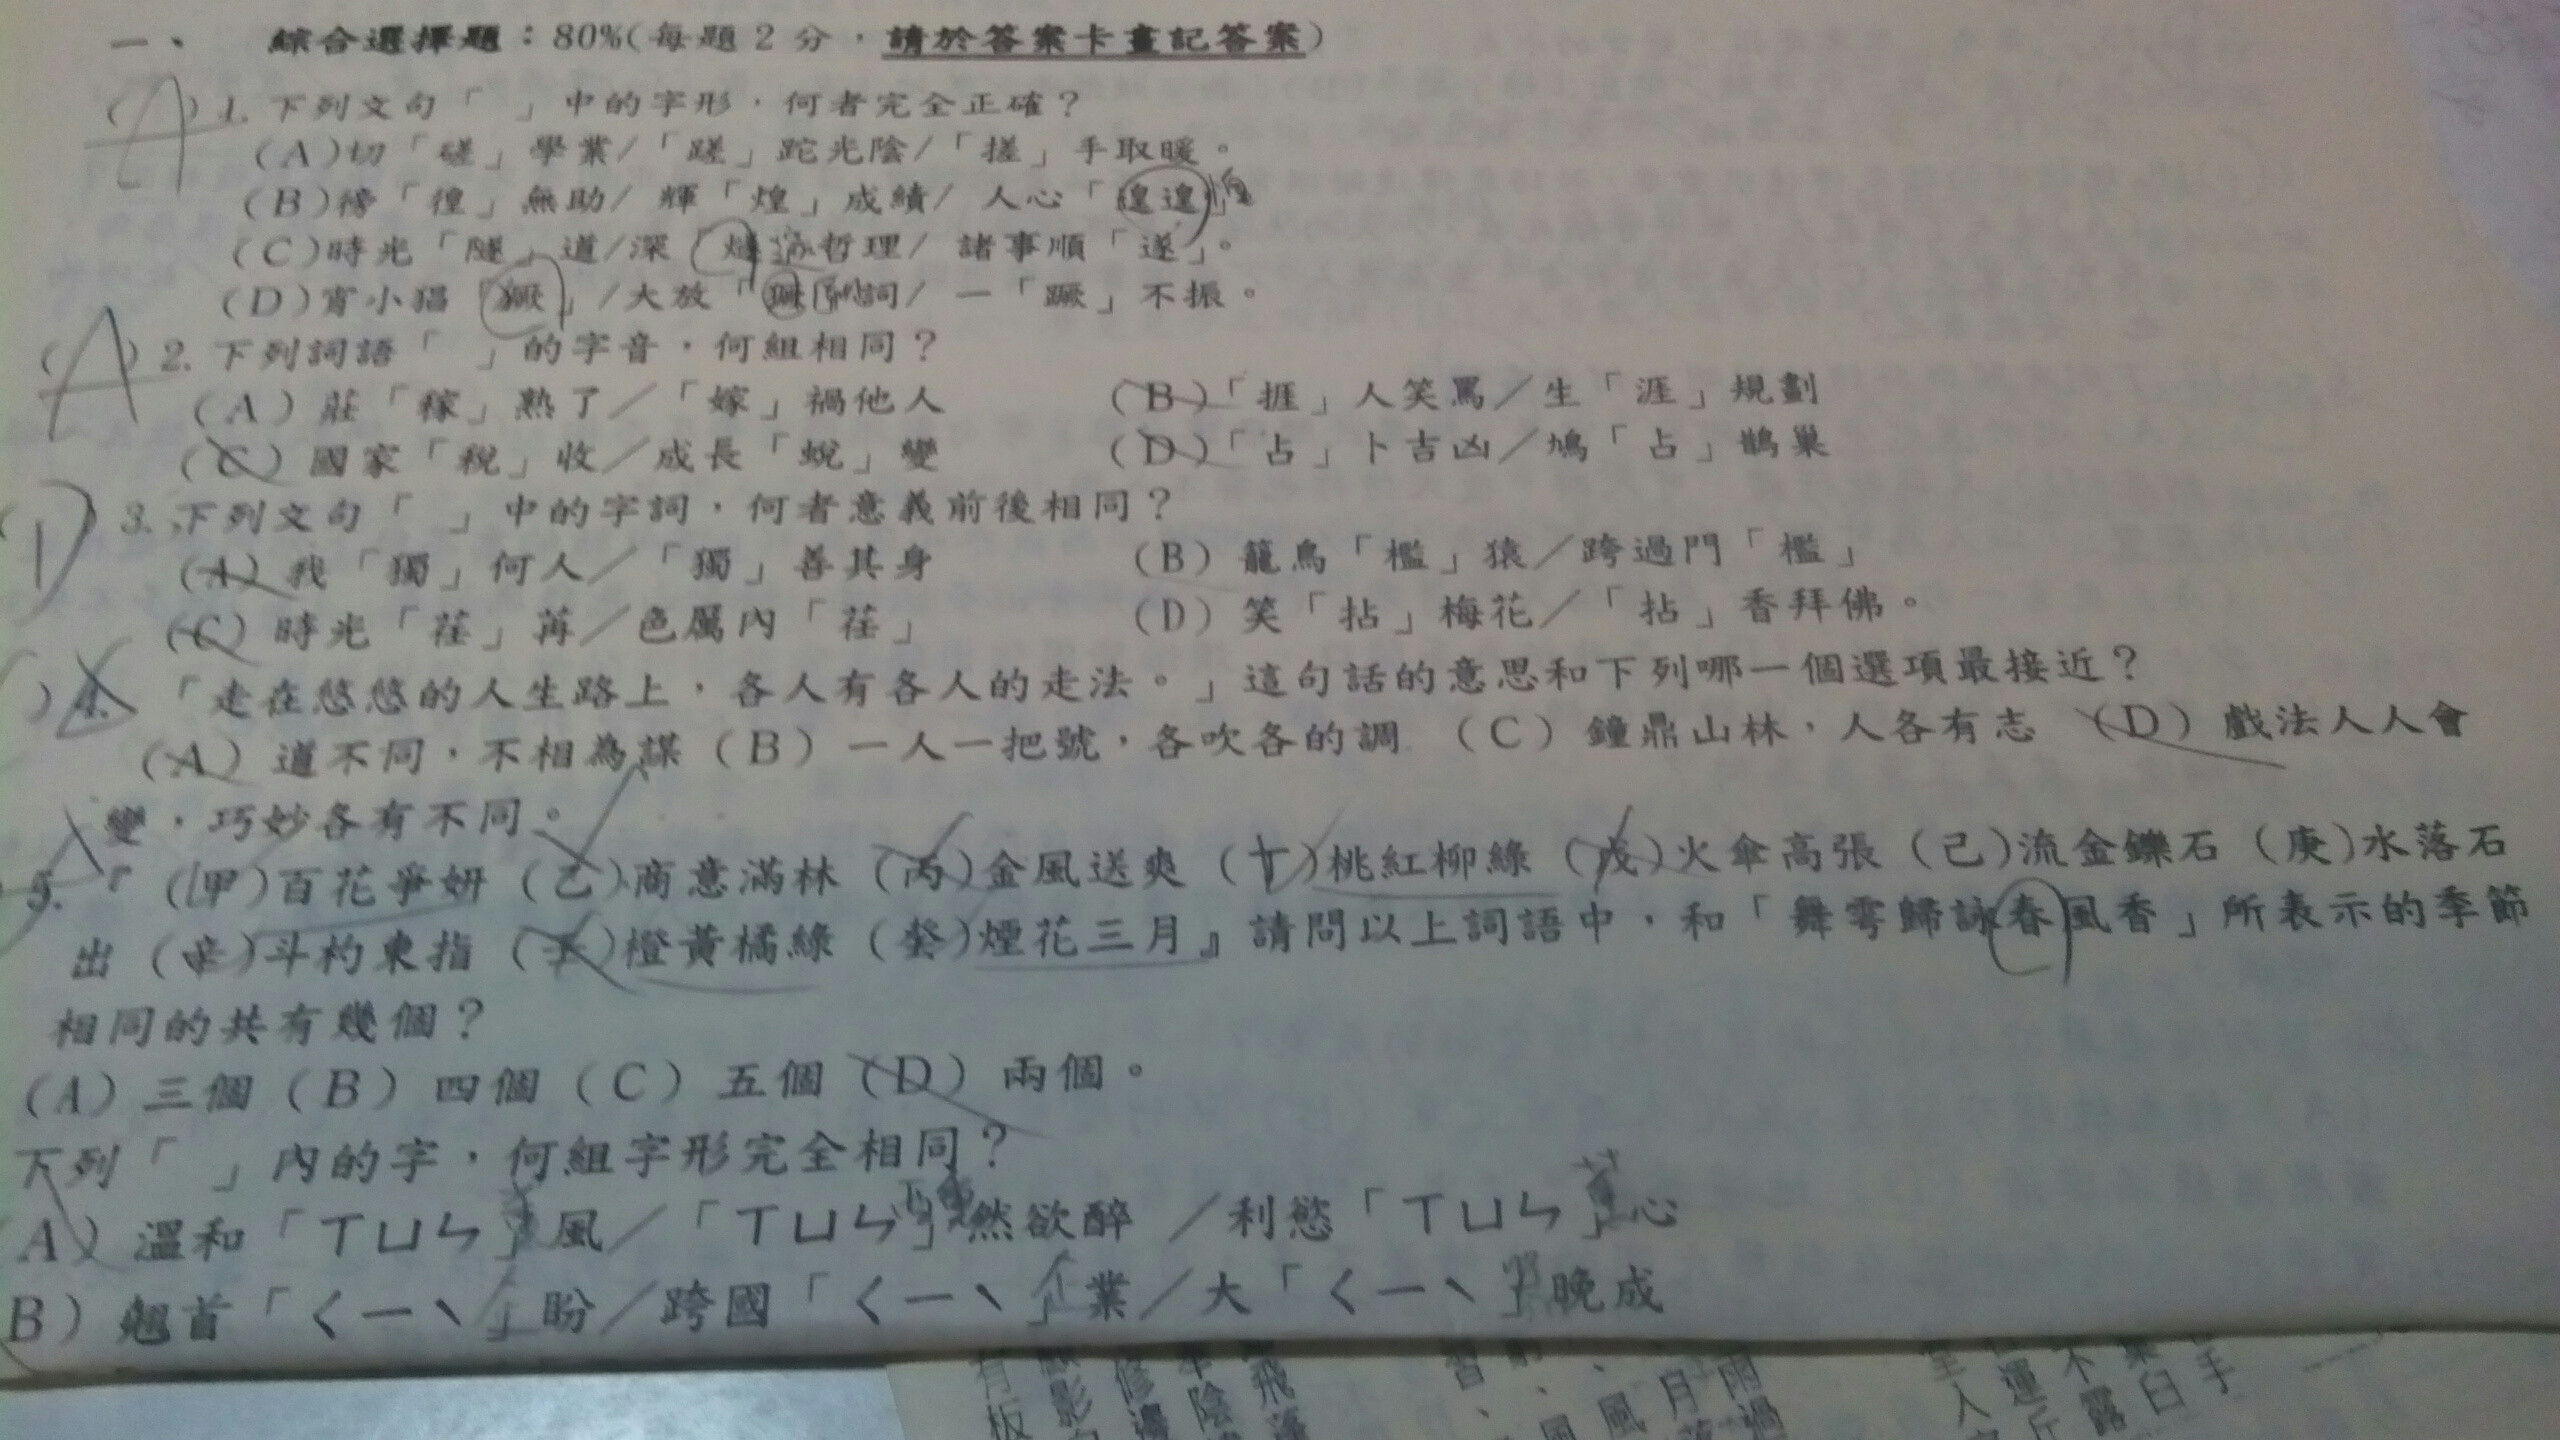 一、 綜合選擇題：80%(每題 2 分，請於答案卡畫記答案)
(A) 1. 下列文句「 」中的字形，何者完全正確？
(A)切「磋」學業/「蹉」跎光陰/「搓」手取暖。
(B)徬「徨」無助/ 輝「煌」成績/ 人心「遑遑」惶
(C)時光「隧」道/深「燧」哲理/ 諸事順「遂」。
(D)宵小猖「獗」/大放「厥」詞/ 一「蹶」不振。
(A) 2. 下列詞語「 」的字音，何組相同？
(A) 莊「稼」熟了／「嫁」禍他人 (B)「捱」人笑罵／生「涯」規劃
(C) 國家「稅」收／成長「蛻」變 (D)「占」卜吉凶／鳩「占」鵲巢
(D) 3. 下列文句「 」中的字詞，何者意義前後相同？
(A) 我「獨」何人／「獨」善其身 (B) 籠鳥「檻」猿／跨過門「檻」
(C) 時光「荏」苒／色厲內「荏」 (D) 笑「拈」梅花／「拈」香拜佛。
) 4. 「走在悠悠的人生路上，各人有各人的走法。」這句話的意思和下列哪一個選項最接近？
(A) 道不同，不相為謀 (B) 一人一把號，各吹各的調 (C) 鐘鼎山林，人各有志 (D) 戲法人人會
變，巧妙各有不同。
5. 『 (甲)百花爭妍 (乙)商意滿林 (丙)金風送爽 (丁)桃紅柳綠 (戊)火傘高張 (己)流金鑠石 (庚)水落石
出 (辛)斗杓東指 (壬)橙黃橘綠 (癸)煙花三月』請問以上詞語中，和「舞雩歸詠春風香」所表示的季節
相同的共有幾個？
(A) 三個 (B) 四個 (C) 五個 (D) 兩個。
下列「 」內的字，何組字形完全相同？
A) 溫和「ㄒㄩㄣ」風／「ㄒㄩㄣ」然欲醉 ／利慾「ㄒㄩㄣ」心
B) 翹首「ㄑㄧˋ」盼／跨國「ㄑㄧˋ」業／大「ㄑㄧˋ」晚成